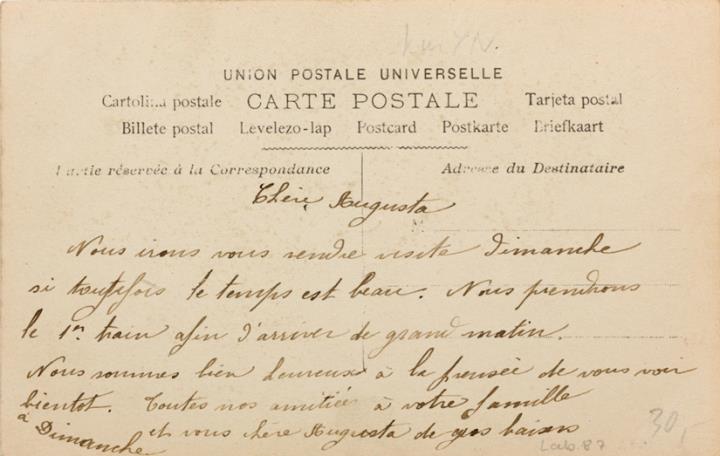 UNION POSTALE UNIVERSELLE
Cartolina postale CARTE POSTALE Tarjeta postal
Billete postal Levelezo-lap Postcard Postkarte Briefkaart
Partie réservée à la Correspondance Adresse du Destinataire
Chère Augusta
Nous irons vous rendre visite Dimanche
si toutefois le temps est beau. Nous prendrons
le 1er train afin d'arriver de grand matin.
Nous sommes bien heureux à la pensée de vous voir
bientot. Toutes nos amitiés à votre famille
et vous chère Augusta de gros baisers
à Dimanche
30,-
Lab. 87